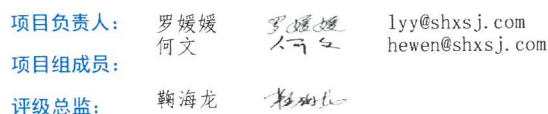 项目负责人： 罗媛媛 罗媛媛 lyy@shxsj.com
何文 何文 hewen@shxsj.com
项目组成员：
评级总监： 鞠海龙 鞠海龙